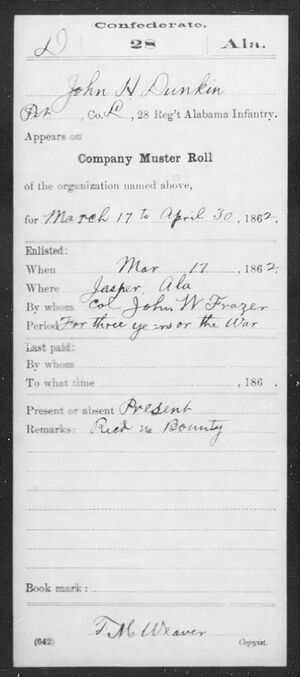 Confederate.
D 28 Ala.
John H Dunkin
Pvt, Co. L, 28 Reg't Alabama Infantry.
Appears on
Company Muster Roll
of the organization named above,
for March 17 to April 30, 1862.
Enlisted:
When Mar 17, 1862.
Where Jasper, Ala
By whom Col John W Frazer
Period For three years or the War
Last paid:
By whom
To what time , 186 .
Present or absent Present
Remarks: Recd no Bounty
Book mark:
T M Weaver
(642) Copyist.